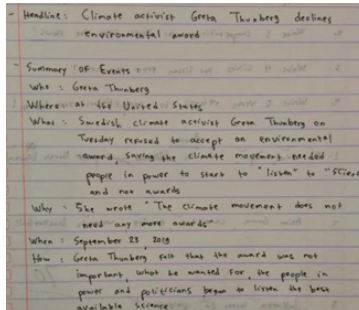 - Headline : Climate activist Greta Thunberg declines
environmental award
- Summary Of Events
Who : Greta Thunberg
Where : at the United States
What : Swedish climate activist Greta Thunberg on
Tuesday refused to accept an environmental
award, saying the climate movement needed
people in power to start to "listen" to "science"
and not awards
Why : She wrote "The climate movement does not
need any more awards
When : September 23, 2019
How : Greta Thunberg felt that the award was not
important, what she wanted for, the people in
power and politicians began to listen the best
available science